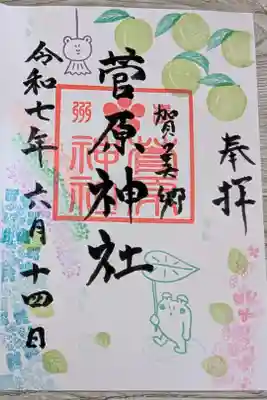 奉拝
賀美郷
菅原神社
令和七年 六月十四日